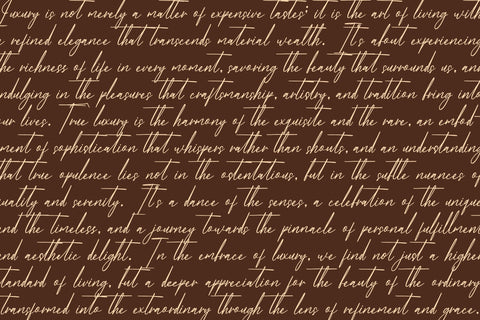 Luxury is not merely a matter of expensive tastes; it is the art of living with
a refined elegance that transcends material wealth. It's about experiencing
the richness of life in every moment, savoring the beauty that surrounds us, and
indulging in the pleasures that craftsmanship, artistry, and tradition bring into
our lives. True luxury is the harmony of the exquisite and the rare, an embod
ment of sophistication that whispers rather than shouts, and an understanding
that true opulence lies not in the ostentatious, but in the subtle nuances of
quality and serenity. It's a dance of the senses, a celebration of the unique
and the timeless, and a journey towards the pinnacle of personal fulfillment
and aesthetic delight. In the embrace of luxury, we find not just a higher
standard of living, but a deeper appreciation for the beauty of the ordinary
transformed into the extraordinary through the lens of refinement and grace.